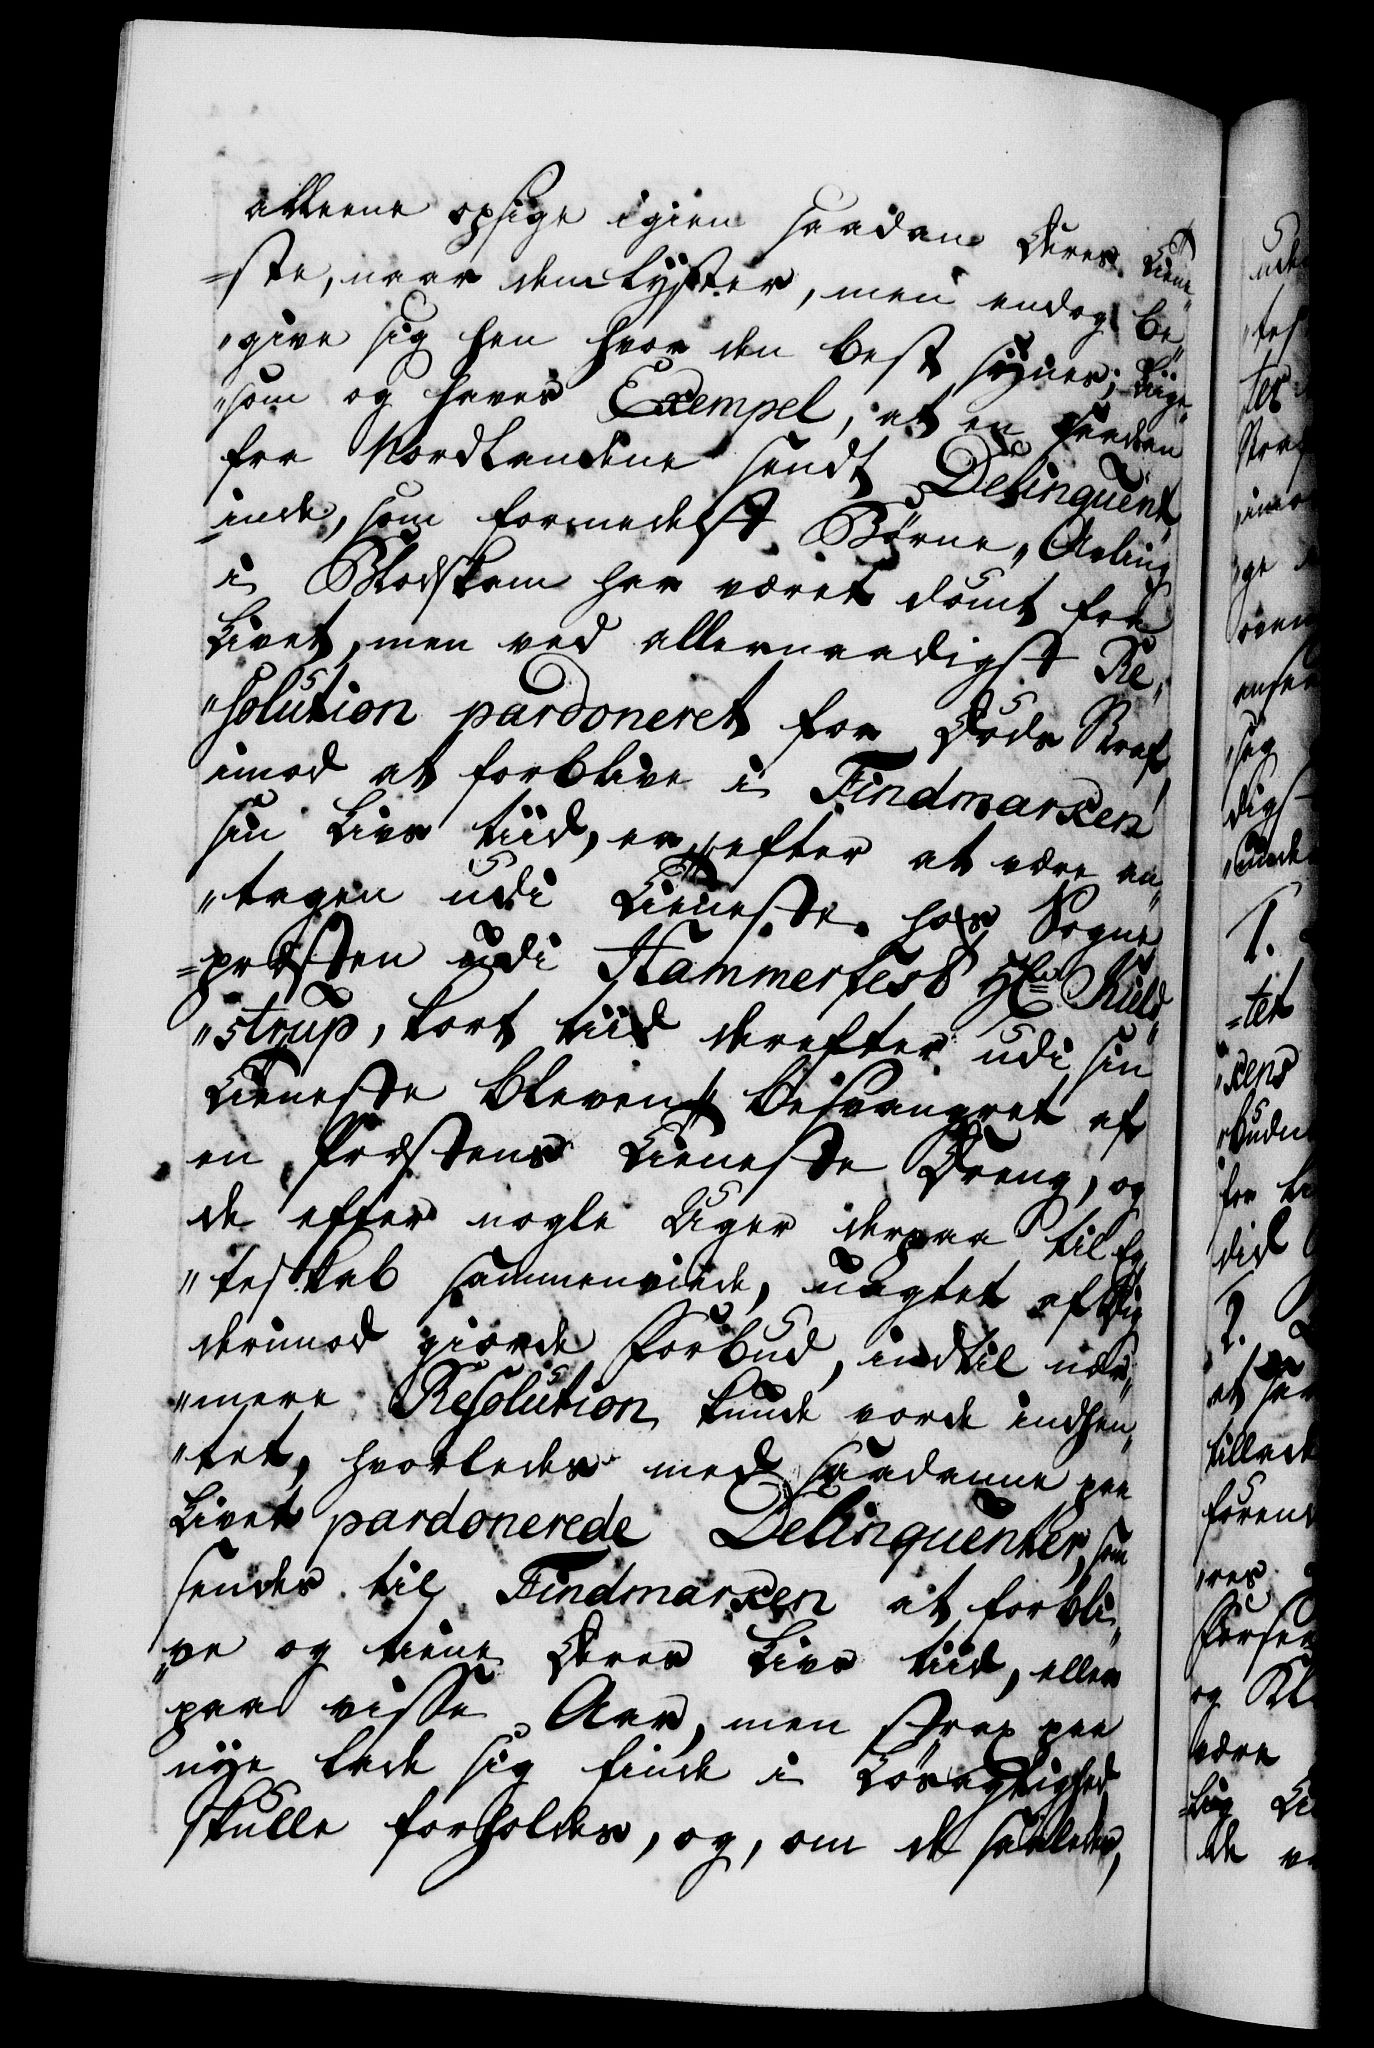 alleene opsige igien saadan deres Tiene¬
=ste, naar dem lyster, men endog be„
„give sig hen hvor den best synes; Liige„
„som og haves Exempel, at en saadan
fra Nordlandene sendt Delinquent„
=inde, som formedelst Børne„Avling
i Blodskam har været dømt fra
Livet, men ved allernaadigst Re„
„solution pardoneret for Døds Straf,
imod at forblive i Findmarken
sin Livs tiid, er, efter at være an„
„tagen udi Tieneste hos Sogne
=præsten udi Hammerfest Hr. Kield„
„strup, kort tiid derefter udi sin
Tieneste bleven besvangret af
en Præstens Tieneste Dreng, og
de efter nogle Uger derpaa til Eg„
„teskab sammenviede, uagtet af Dig
derimod giorde Forbud, indtil nær„
„mere Resolution kunde vorde indhen„
„tet, hvorledes med saadanne paa
Livet pardonerede Delinquenter, som
sendes til Findmarken at forbli„
„ve og tiene deres Livs tiid, eller
paa visse Aar, men strax paa
nye lade sig finde i Løsagtighed
skulle forholdes, og, om de saaledes,